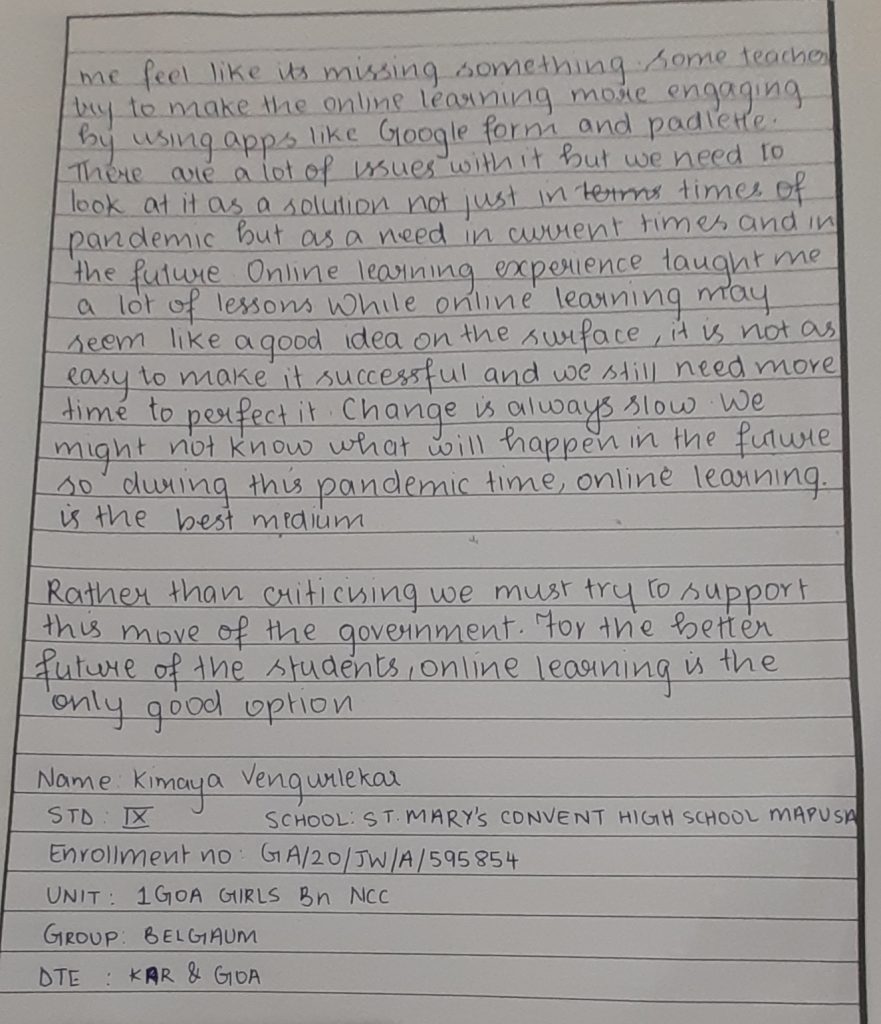 me feel like its missing something. some teacher
try to make the online learning more engaging
by using apps like Google form and padlette.
There are a lot of issues with it but we need to
look at it as a solution not just in terms times of
pandemic but as a need in current times and in
the future. Online learning experience taught me
a lot of lessons While online learning may
seem like a good idea on the surface, it is not as
easy to make it successful and we still need more
time to perfect it. Change is always slow. We
might not know what will happen in the future
so during this pandemic time, online learning.
is the best medium
Rather than criticising we must try to support
this move of the government. For the better
future of the students, online learning is the
only good option
Name: Kimaya Vengurlekar
STD: IX SCHOOL: ST. MARY'S CONVENT HIGH SCHOOL MAPUSA
Enrollment no: GA/20/JW/A/595854
UNIT: 1 GOA GIRLS Bn NCC
GROUP: BELGAUM
DTE : KAR & GOA